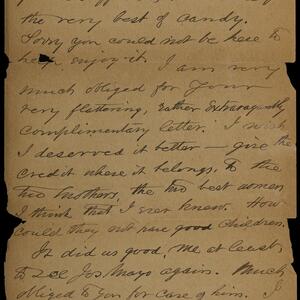 the very best of candy.
Sorry you could not be here to
help enjoy it. I am very
much obliged for your
very flattering, rather extravagantly
complimentary letter. I wish
I deserved it better — give the
credit where it belongs, to the
two mothers, the two best women
I think that I ever knew. How
could they not have good children.
It did us good, me at least,
to see Jos. Mayo again. Much
obliged to you for care of him. I